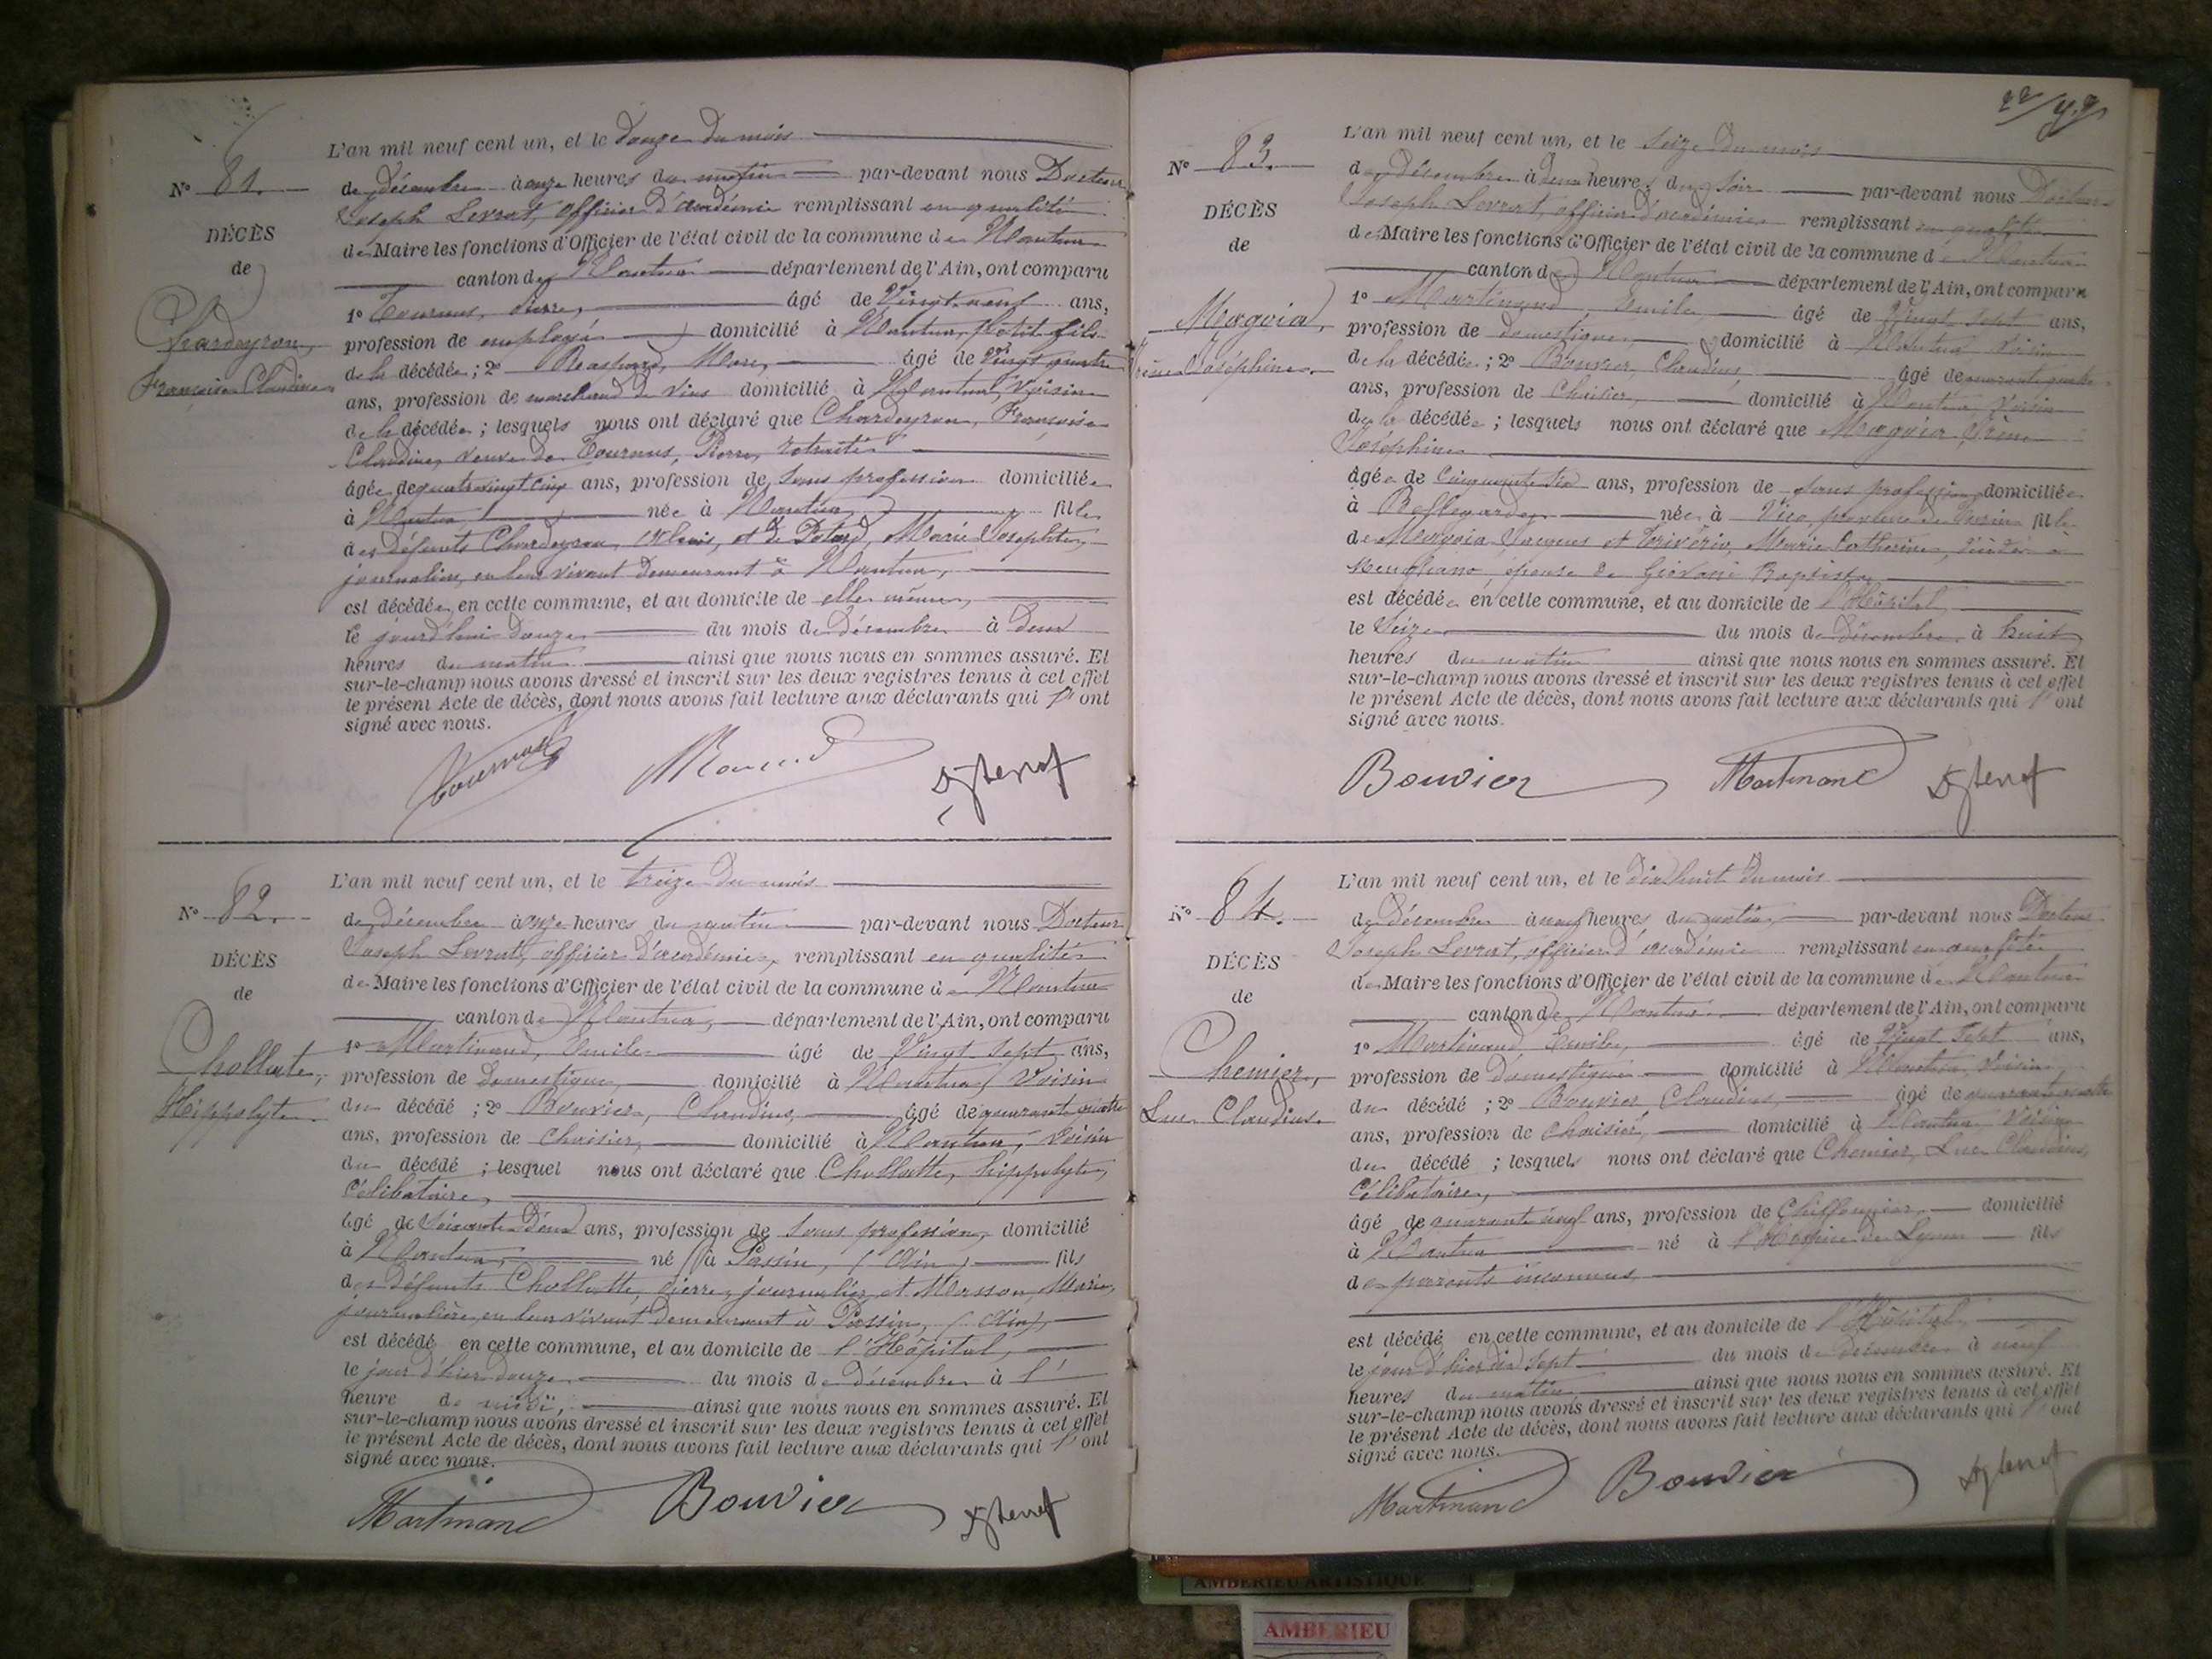 L'an mil neuf cent un, et le douze du mois
N° 81.
de décembre à onze heures du matin par-devant nous Docteur
Joseph Levrat, officier d'académie remplissant en qualité
DÉCÈS
de Maire les fonctions d'Officier de l'état civil de la commune de Nantua
de
canton de Nantua département de l'Ain, ont comparu
1° Tournus, Pierre, âgé de Vingt neuf ans,
Chardeyron,
profession de employé domicilié à Nantua, petit fils
Françoise Claudine
de la décédée ; 2° Marc, âgé de vingt quatre
ans, profession de marchand de vins domicilié à Nantua, Voisin
de la décédée ; lesquels nous ont déclaré que Chardeyron, Françoise
Claudine, veuve de Tournus, Pierre, retraité
âgée de quatre vingt cinq ans, profession de sans profession domiciliée
à Nantua née à Nantua fille
des défunts Chardeyron, et de Marie Josephte,
journaliers, en leur vivant demeurant à Nantua,
est décédée, en cette commune, et au domicile de elle même,
le jourd'hui douze du mois de décembre à deux
heures du matin ainsi que nous nous en sommes assuré. Et
sur-le-champ nous avons dressé et inscrit sur les deux registres tenus à cet effet
le présent Acte de décès, dont nous avons fait lecture aux déclarants qui l'ont
signé avec nous.
Tournus
L'an mil neuf cent un, et le treize du mois
N° 82.
de décembre à onze heures du matin par-devant nous Docteur
Joseph Levrat, officier d'académie, remplissant en qualité
DÉCÈS
de Maire les fonctions d'Officier de l'état civil de la commune de Nantua
de
canton de Nantua, département de l'Ain, ont comparu
1° Martinand, Emile âgé de Vingt sept ans,
Chollatte,
profession de domestique, domicilié à Nantua, Voisin
Hippolyte.
du décédé ; 2° Bouvier, Claudius, âgé de quarante quatre
ans, profession de chaisier, domicilié à Nantua, Voisin
du décédé ; lesquel nous ont déclaré que Chollatte, hippolyte,
Célibataire,
âgé de Soixante Deux ans, profession de sans profession, domicilié
à Nantua, né à Passin, (Ain) fils
des défunts Chollatte, Pierre, journalier, et Masson, Marie,
journalière, en leur vivant demeurant à Passin, (Ain),
est décédé en cette commune, et au domicile de l'Hôpital,
le jour d'hier douze du mois de Décembre à l'
heure de midi, ainsi que nous nous en sommes assuré. Et
sur-le-champ nous avons dressé et inscrit sur les deux registres tenus à cet effet
le présent Acte de décès, dont nous avons fait lecture aux déclarants qui l'ont
signé avec nous.
Martinand Bouvier Dr J Levrat
L'an mil neuf cent un, et le Seize du mois
N° 83.
de décembre à deux heures du soir par-devant nous Docteur
Joseph Levrat, officier d'académie remplissant en qualité
DÉCÈS
de Maire les fonctions d'Officier de l'état civil de la commune de Nantua
de
canton de Nantua département de l'Ain, ont comparu
1° Martinand, Emile, âgé de Vingt sept ans,
Magoia,
profession de domestique, domicilié à Nantua Voisin
Joséphine.
de la décédée ; 2° Bouvier, Claudius, âgé de quarante quatre
ans, profession de Chaisier, domicilié à Nantua, voisin
de la décédée ; lesquels nous ont déclaré que Magoia
Joséphine
âgée de Cinquante Six ans, profession de sans profession, domiciliée
à Bellegarde née à Vico province de Turin fille
de Magoia Jacques et Marie Catherine,
épouse de Giovani Baptista
est décédée en cette commune, et au domicile de l'Hôpital,
le Seize du mois de décembre à huit
heures du matin ainsi que nous nous en sommes assuré. Et
sur-le-champ nous avons dressé et inscrit sur les deux registres tenus à cet effet
le présent Acte de décès, dont nous avons fait lecture aux déclarants qui l'ont
signé avec nous.
Bouvier Martinand Dr J Levrat
L'an mil neuf cent un, et le dix huit du mois
N° 84.
de Décembre à neuf heures du matin, par-devant nous Docteur
Joseph Levrat, officier d'académie remplissant en qualité
DÉCÈS
de Maire les fonctions d'Officier de l'état civil de la commune de Nantua
de
canton de Nantua département de l'Ain, ont comparu
1° Martinand, Emile, âgé de Vingt Sept ans,
Chemier,
profession de Domestique domicilié à Nantua Voisin
Luc Claudius.
du décédé ; 2° Bouvier Claudius âgé de quarante quatre
ans, profession de chaisier, domicilié à Nantua Voisin
du décédé ; lesquels nous ont déclaré que Chemier, Luc Claudius,
Célibataire,
âgé de quarante neuf ans, profession de Chiffonnier, domicilié
à Nantua né à l'Hospice de Lyon fils
de parents inconnus
est décédé en cette commune, et au domicile de l'Hôpital
le jour d'hier dix sept du mois de décembre à neuf
heures du matin ainsi que nous nous en sommes assuré. Et
sur-le-champ nous avons dressé et inscrit sur les deux registres tenus à cet effet
le présent Acte de décès, dont nous avons fait lecture aux déclarants qui l'ont
signé avec nous.
Martinand Bouvier Dr J Levrat
AMBERIEU ARTISTIQUE
AMBERIEU